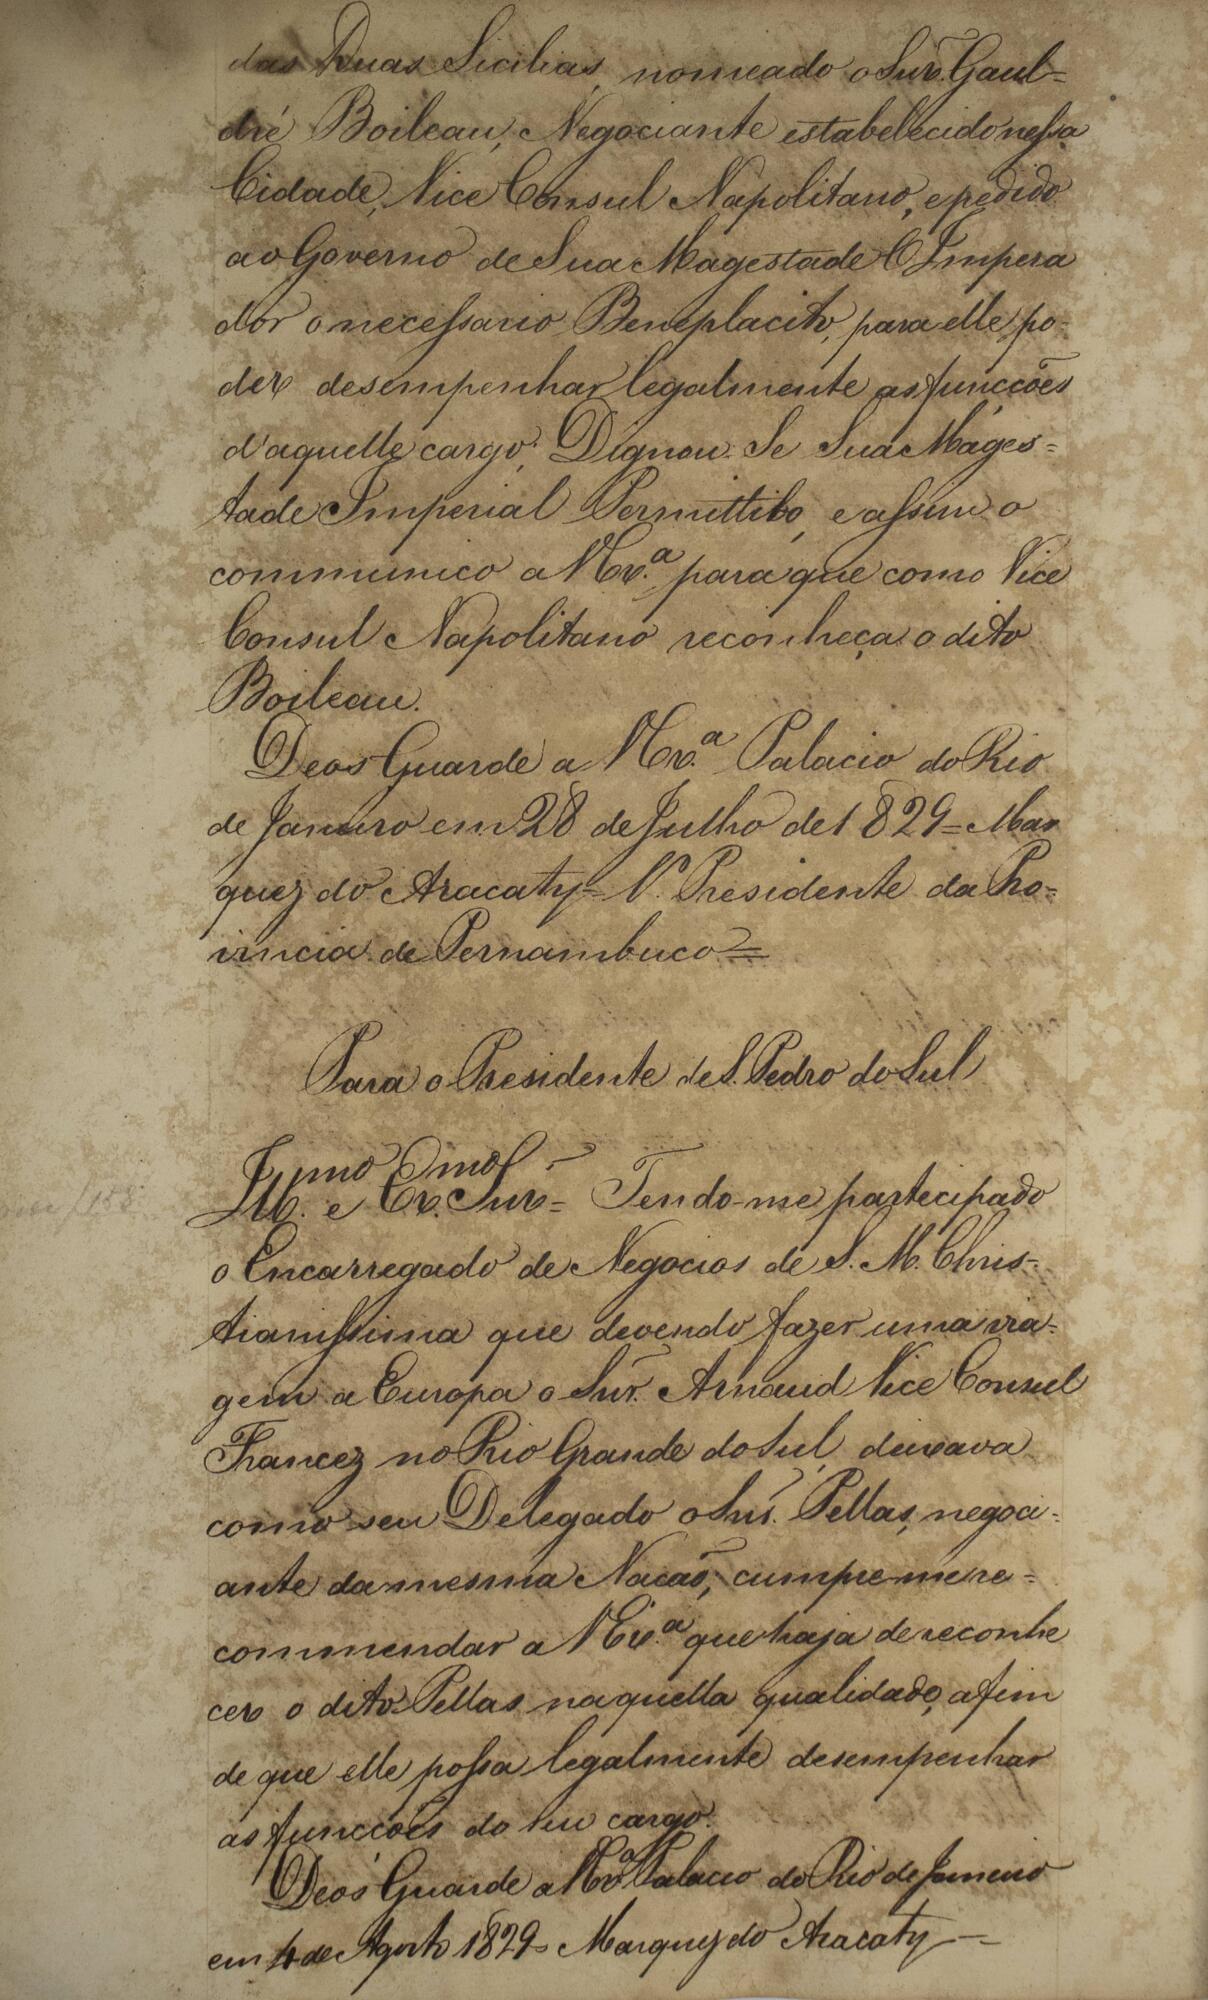 das Duas Sicilias, nomeado o Snr. Gaul=
dré Boileau, Negociante estabelecido nessa
Cidade, Vice Consul Napolitano, e pedido
ao Governo de Sua Magestade O Impera
dor o necessario Beneplacito, para elle po-
der desempenhar legalmente as funccões
d'aquelle cargo; Dignou Se Sua Mages=
tade Imperial Permittilo, e assim o
communico a V Ex.ª para que como Vice
Consul Napolitano reconheça o dito
Boileau.
Deos Guarde a V Ex.ª Palacio do Rio
de Janeiro em 28 de Julho de 1829= Mar
quez do Aracaty= Vº Presidente da Pro=
vincia de Pernambuco=
Para o Presidente de S. Pedro do Sul
Ill.mo e Ex.mo Snr= Tendo-me partecipado
o Encarregado de Negocios de S. M. Chris=
tianissima que devendo fazer uma via=
gem a Europa o Snr. Arnaud Vice Consul
Francez no Rio Grande do Sul, deixava
como seu Delegado o Snr. Pellas, negoci=
ante da mesma Nacaõ; cumpre-me re=
commendar a V Ex.ª que haja de reconhe
cer o dito Pellas naquella qualidade, afim
de que elle possa legalmente desempenhar
as funccões do seu cargo.
Deos Guarde a V Ex.ª Palacio do Rio de Janeiro
em 4 de Agosto 1829= Marquez do Aracaty—